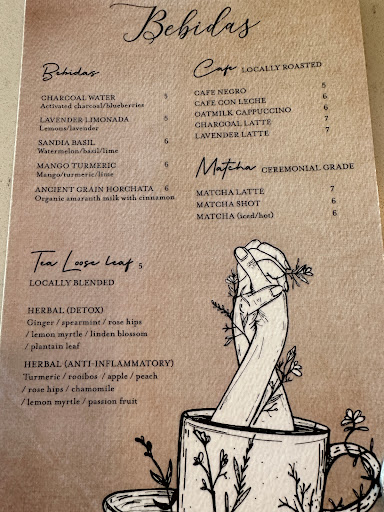 Bebidas
Bebidas
CHARCOAL WATER 5
Activated charcoal/blueberries
LAVENDER LIMONADA 5
Lemons/lavender
SANDIA BASIL 6
Watermelon/basil/lime
MANGO TURMERIC 6
Mango/turmeric/lime
ANCIENT GRAIN HORCHATA 6
Organic amaranth milk with cinnamon
Cafe LOCALLY ROASTED
CAFE NEGRO 5
CAFE CON LECHE 6
OATMILK CAPPUCCINO 6
CHARCOAL LATTE 7
LAVENDER LATTE 7
Matcha CEREMONIAL GRADE
MATCHA LATTE 7
MATCHA SHOT 6
MATCHA (iced/hot) 6
Tea Loose leaf 5
LOCALLY BLENDED
HERBAL (DETOX)
Ginger / spearmint / rose hips
/ lemon myrtle / linden blossom
/ plantain leaf
HERBAL (ANTI-INFLAMMATORY)
Turmeric / rooibos / apple / peach
/ rose hips / chamomile
/ lemon myrtle / passion fruit